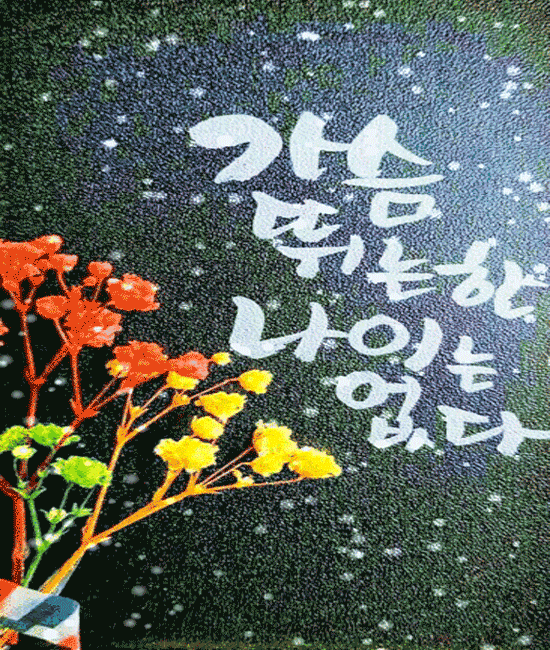 가슴
뛰는한
나이는
없다